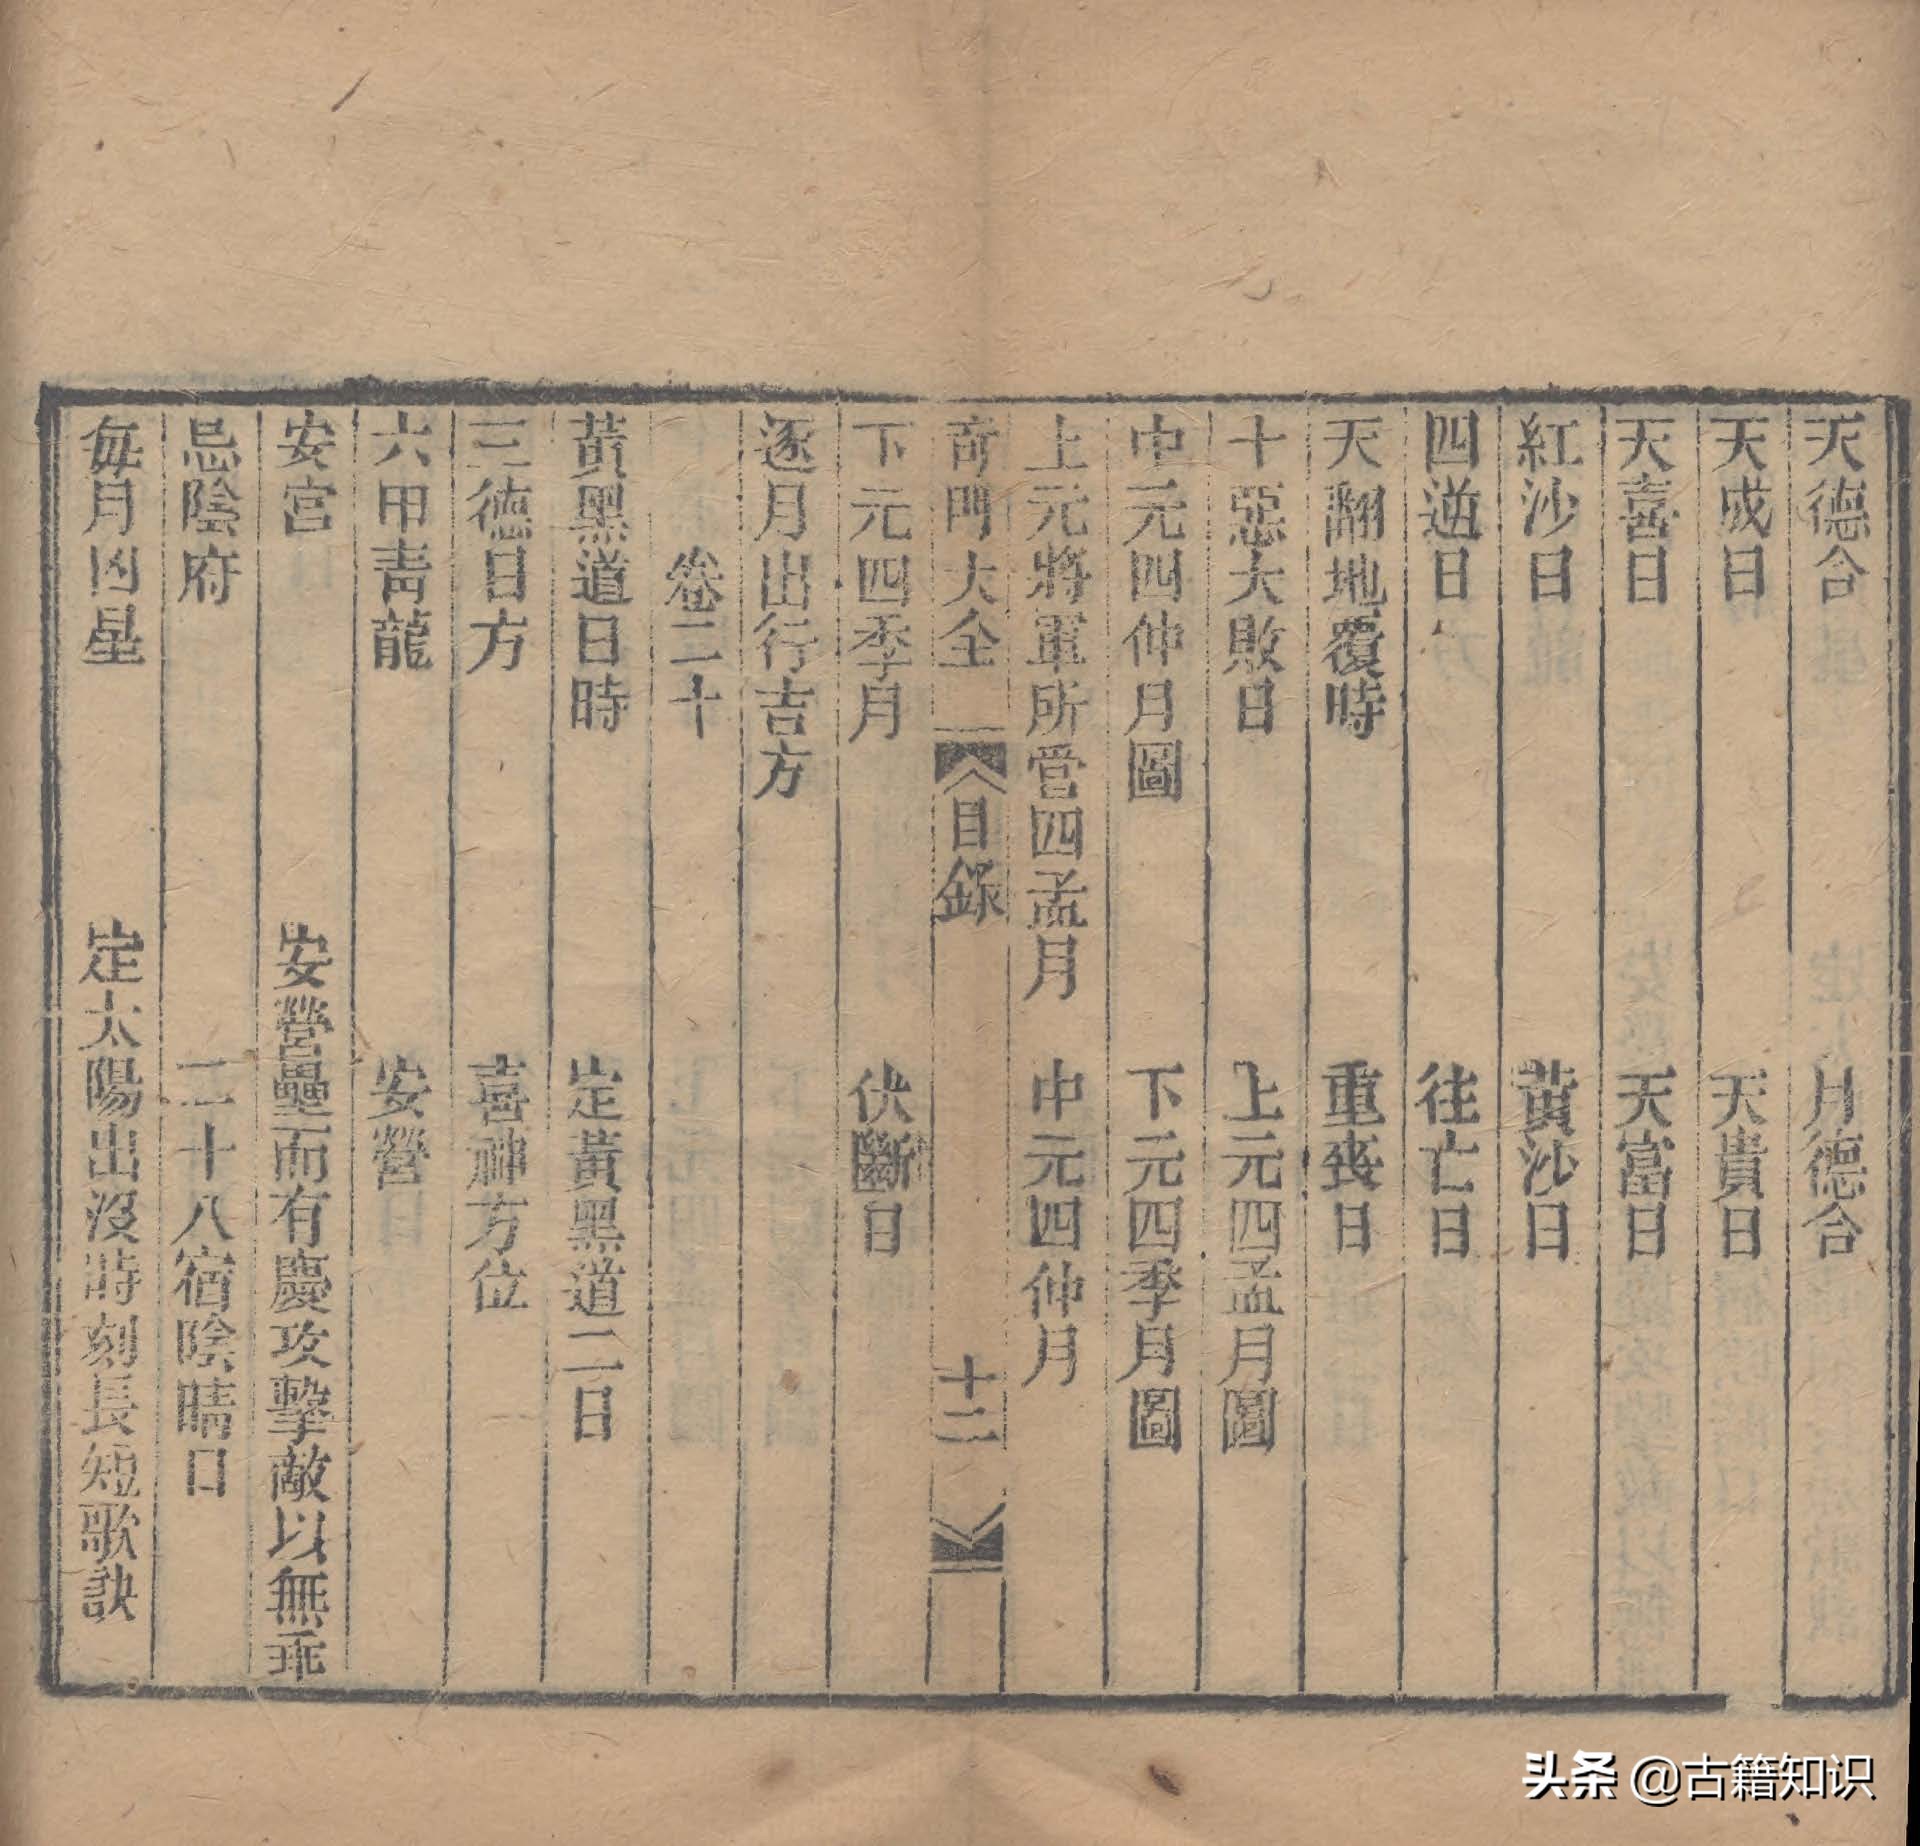 天德合　月德合
天成日　天貴日
天喜日　天富日
紅沙日　黃沙日
四逆日　往亡日
天翻地覆時　重喪日
十惡大敗日　上元四孟月圖
中元四仲月圖　下元四季月圖
上元將軍所當四孟月　中元四仲月
奇門大全　目錄　十二
下元四季月　伏斷日
逐月出行吉方
卷二十
黃黑道日時　定黃黑道二日
三德日方　喜神方位
六甲青龍　安營
安宮　安營壘而有慶攻擊敵以無乖
忌陰府　二十八宿陰晴口
每月凶星　定太陽出沒時刻長短歌訣
头条 @古籍知识